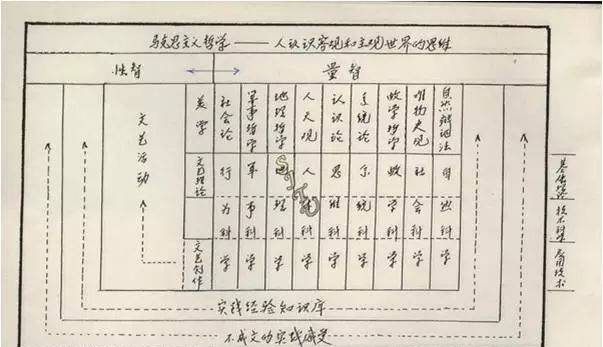 马克思主义哲学——人认识客观和主观世界的思维
性智 ←→ 量智
文艺活动
美学
文艺理论
文艺创作
社会论
行为科学
军事哲学
军事科学
地理哲学
地理科学
人天观
人体科学
认识论
思维科学
系统论
系统科学
数学哲学
数学科学
唯物史观
社会科学
自然辩证法
自然科学
基础理论
技术科学
应用技术
实践经验知识库
不成文的实践感受